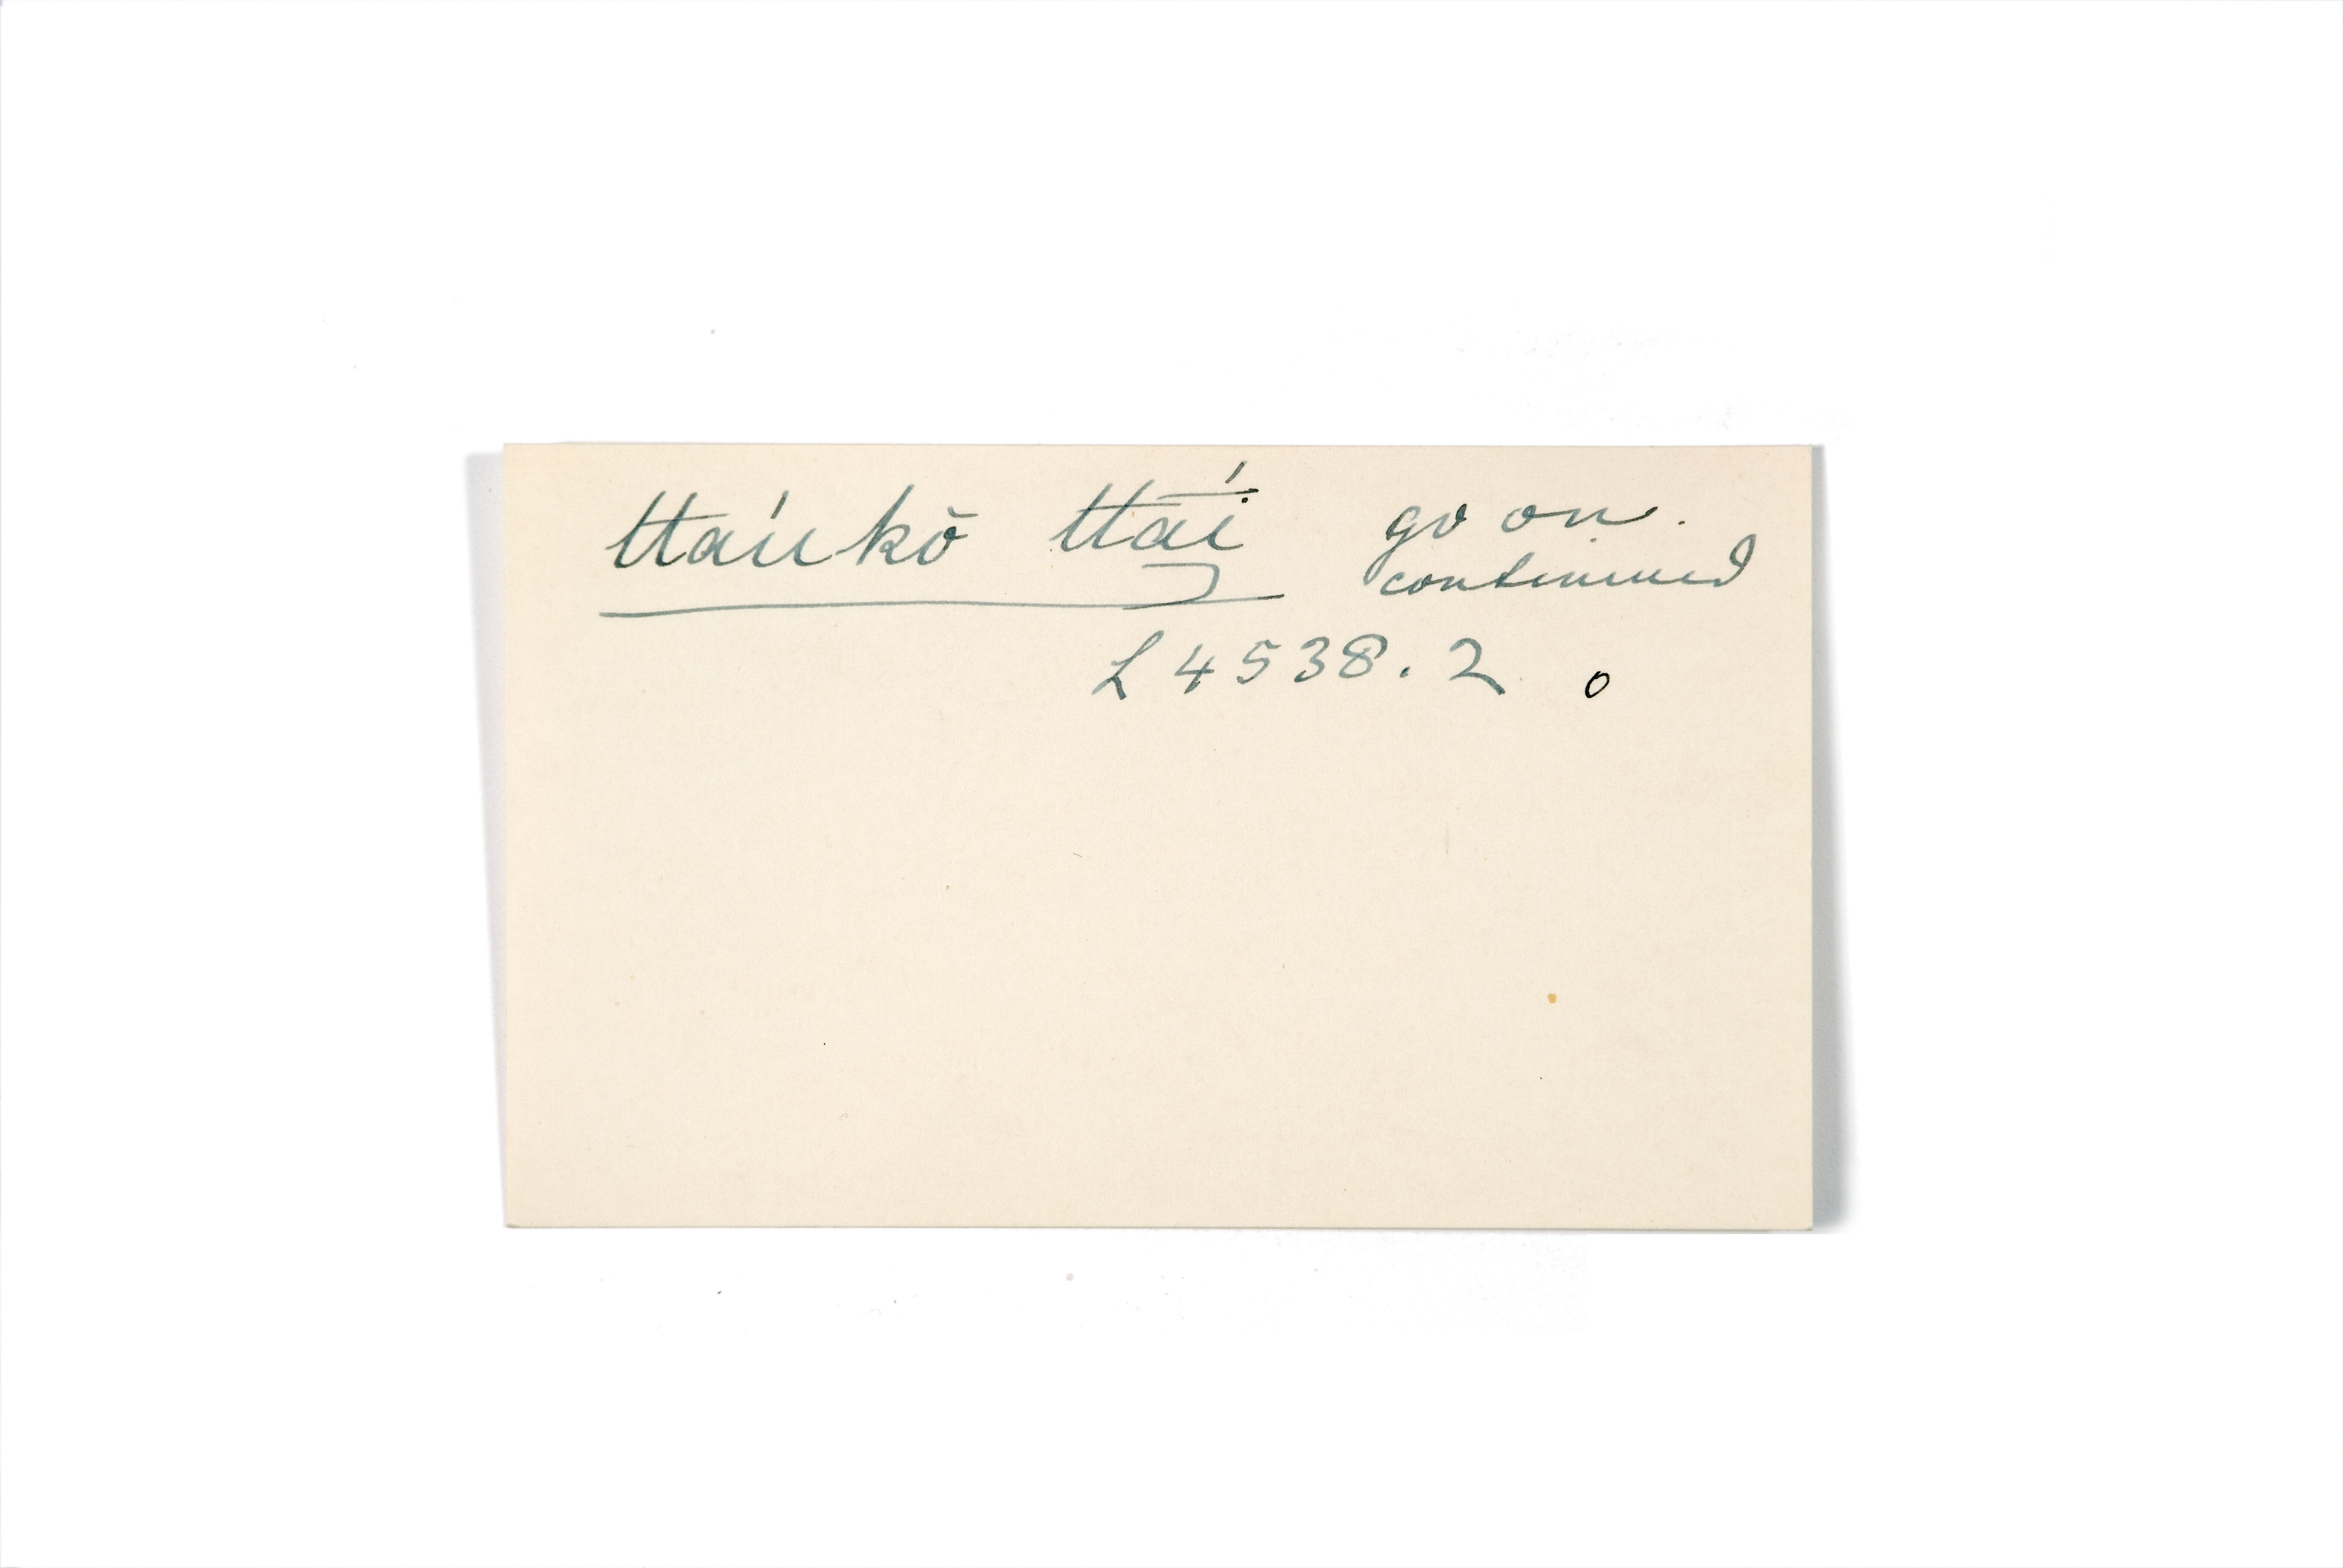 ttáukŏ ttāí go on.
continued
L 4538. 2 o